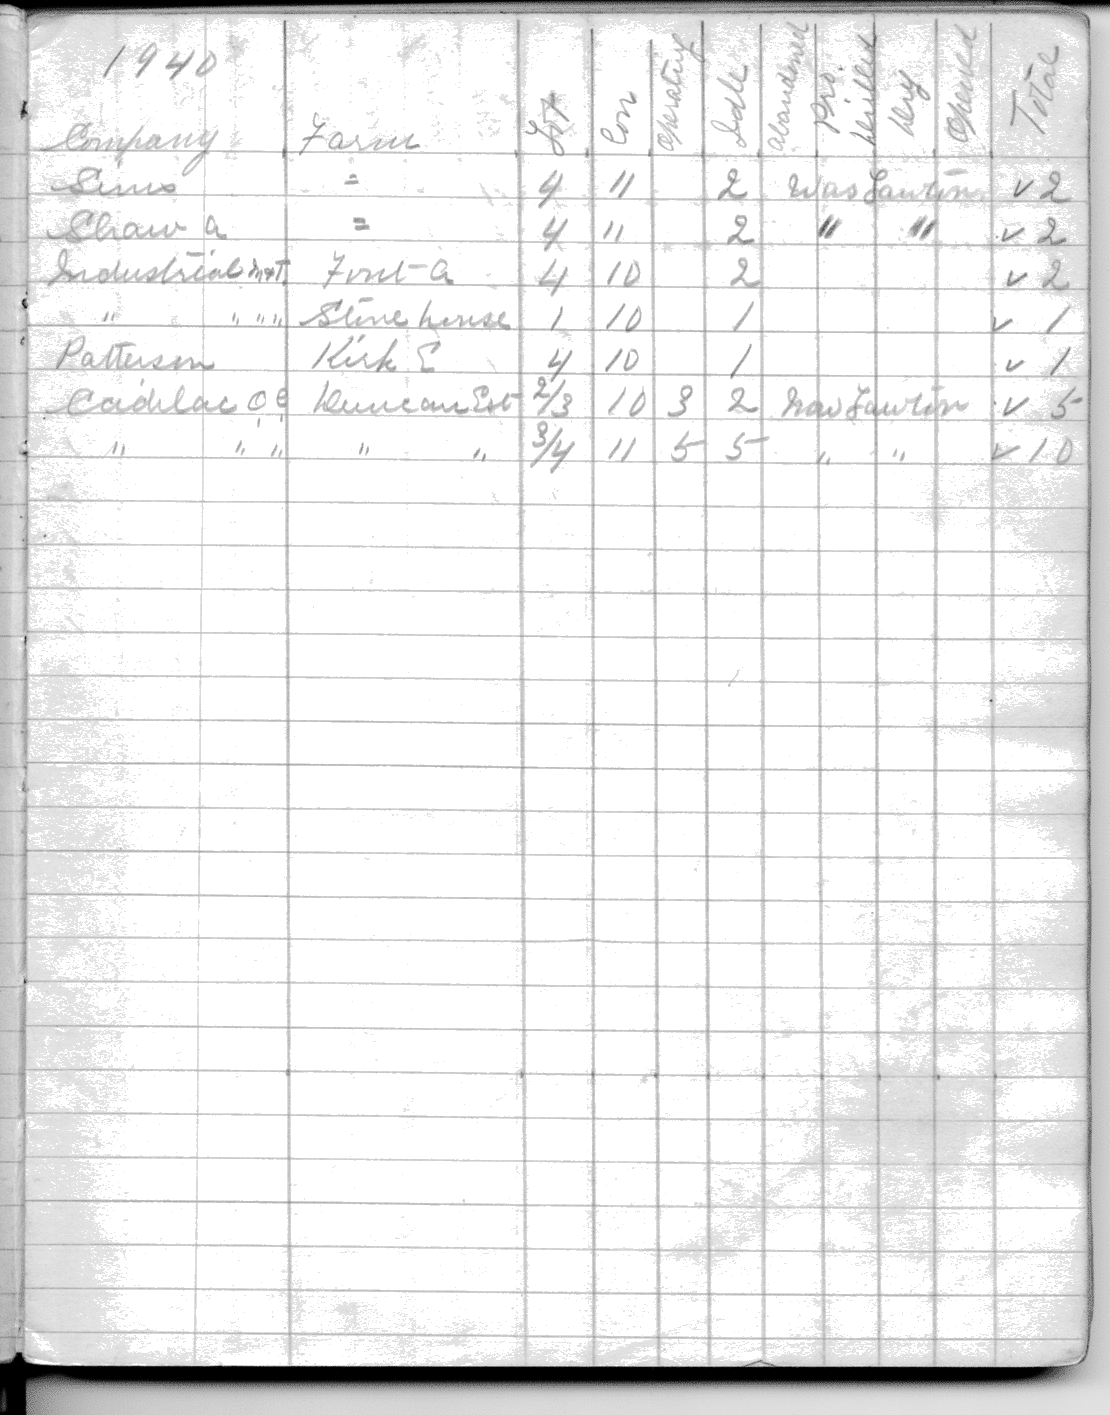 1940
Company Farm Lot Con Operating Idle Abandoned Pro. Drilled Dry Opened Total
Sims = 4 11 2 Was Lawton ✓ 2
Shaw A = 4 11 2 " " ✓ 2
Industrial Inst. Font A 4 10 2 ✓ 2
" " " " Stonehouse 1 10 1 ✓ 1
Patterson Kirk E 4 10 1 ✓ 1
Cadilac O C Duncan Est 2/3 10 3 2 Now Lawton ✓ 5
" " " " " 3/4 11 5 5 " " ✓ 10